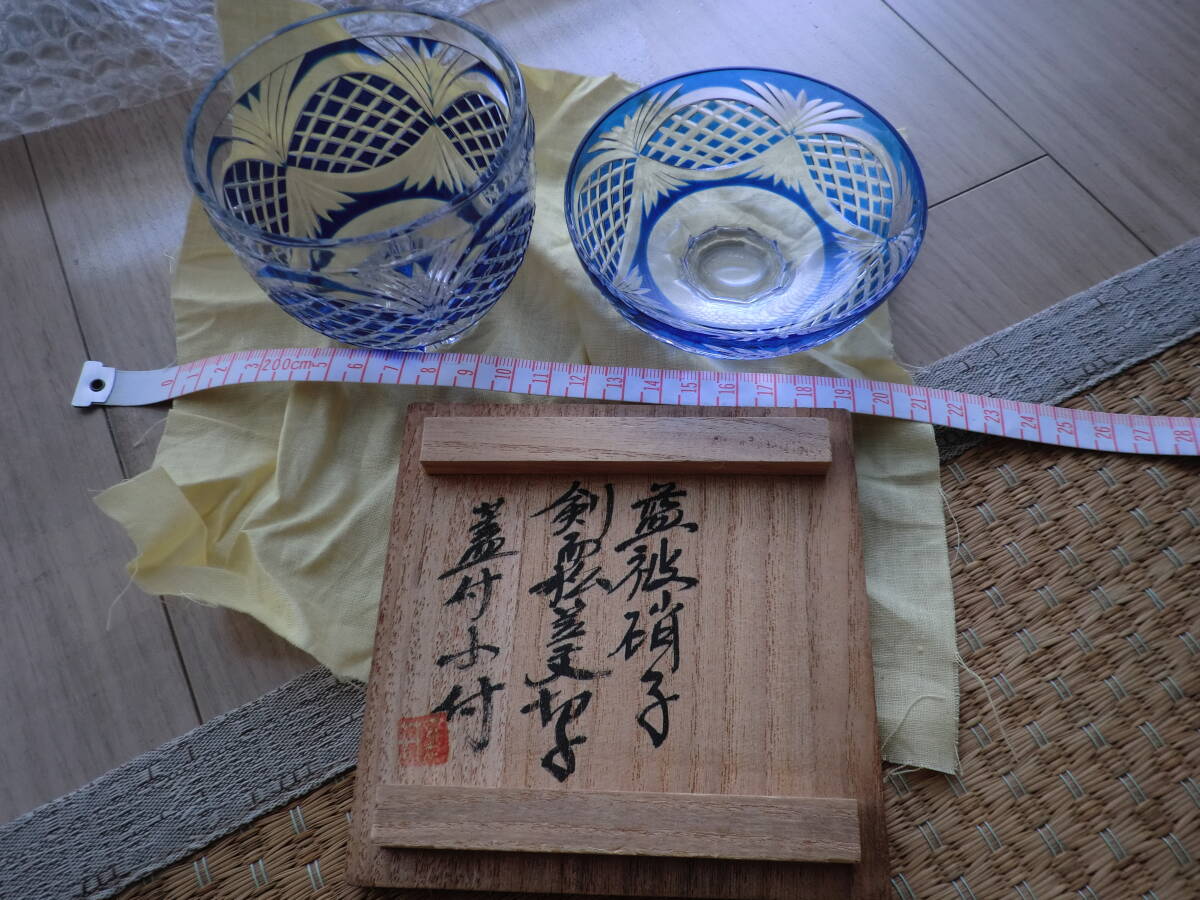 藍被硝子
剣菱文切子
蓋付小付
0 1 2 3 200cm 5 6 7 8 9 10 11 12 13 14 15 16 17 18 19 20 21 22 23 24 25 26 27 28